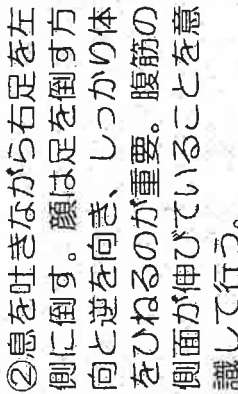 ②息を吐きながら右足を左
側に倒す。顔は足を倒す方
向と逆を向き、しっかり体
をひねるのが重要。腹筋の
側面が伸びていることを意
識して行う。